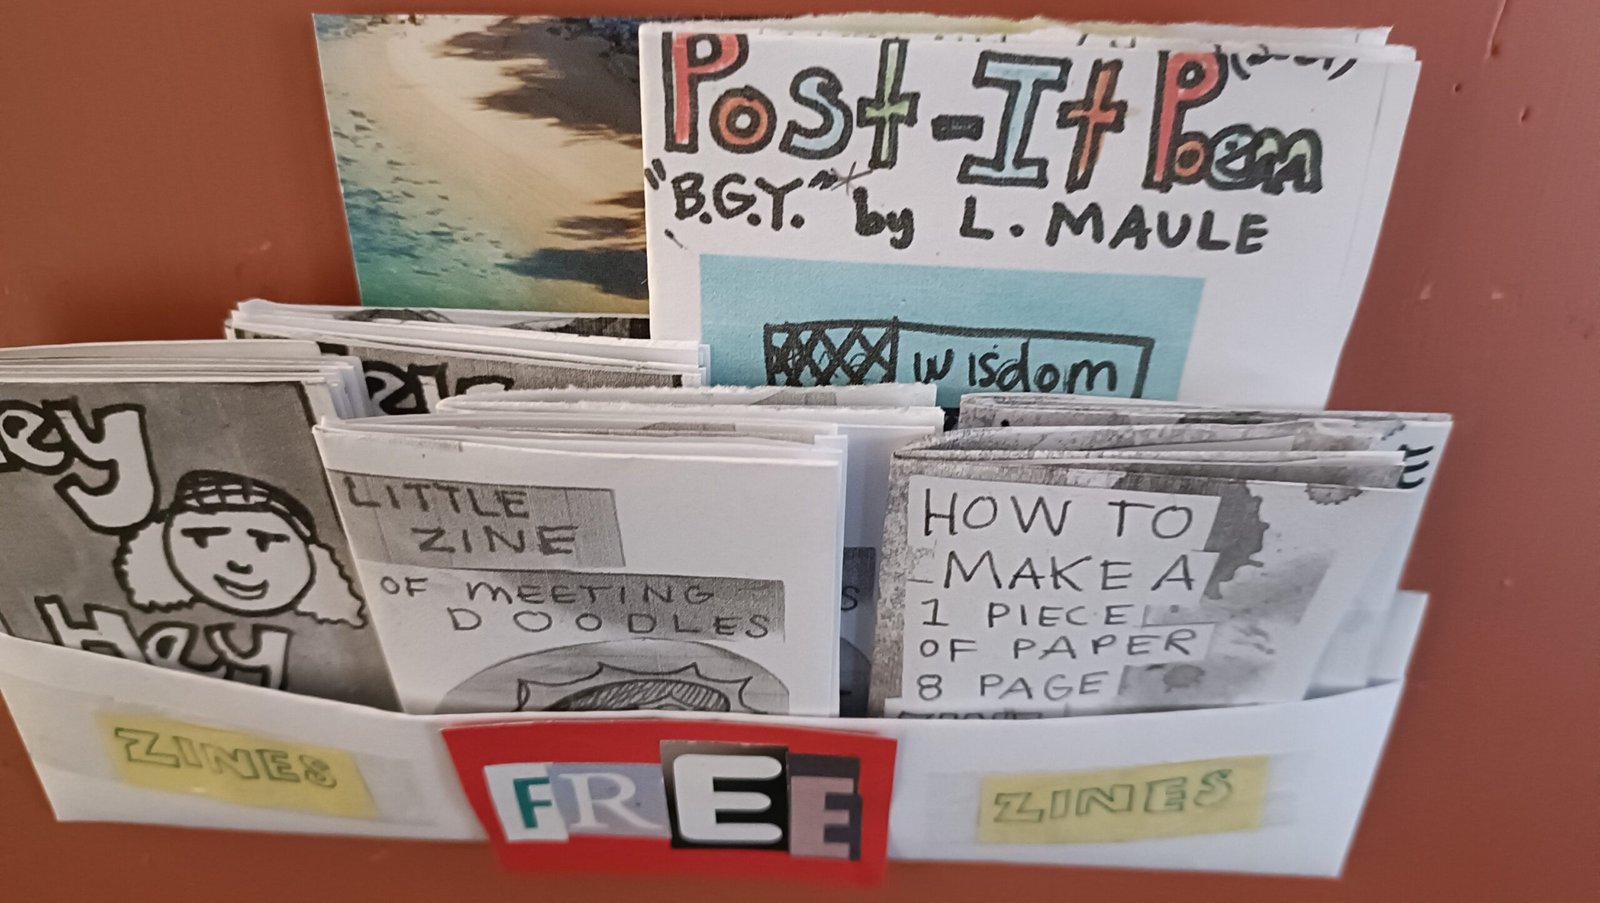 Post-It Poem
"B.G.Y." by L. MAULE
wisdom
ey
Hey
LITTLE
ZINE
OF MEETING
DOODLES
HOW TO
MAKE A
1 PIECE
OF PAPER
8 PAGE
ZINES
FREE
ZINES